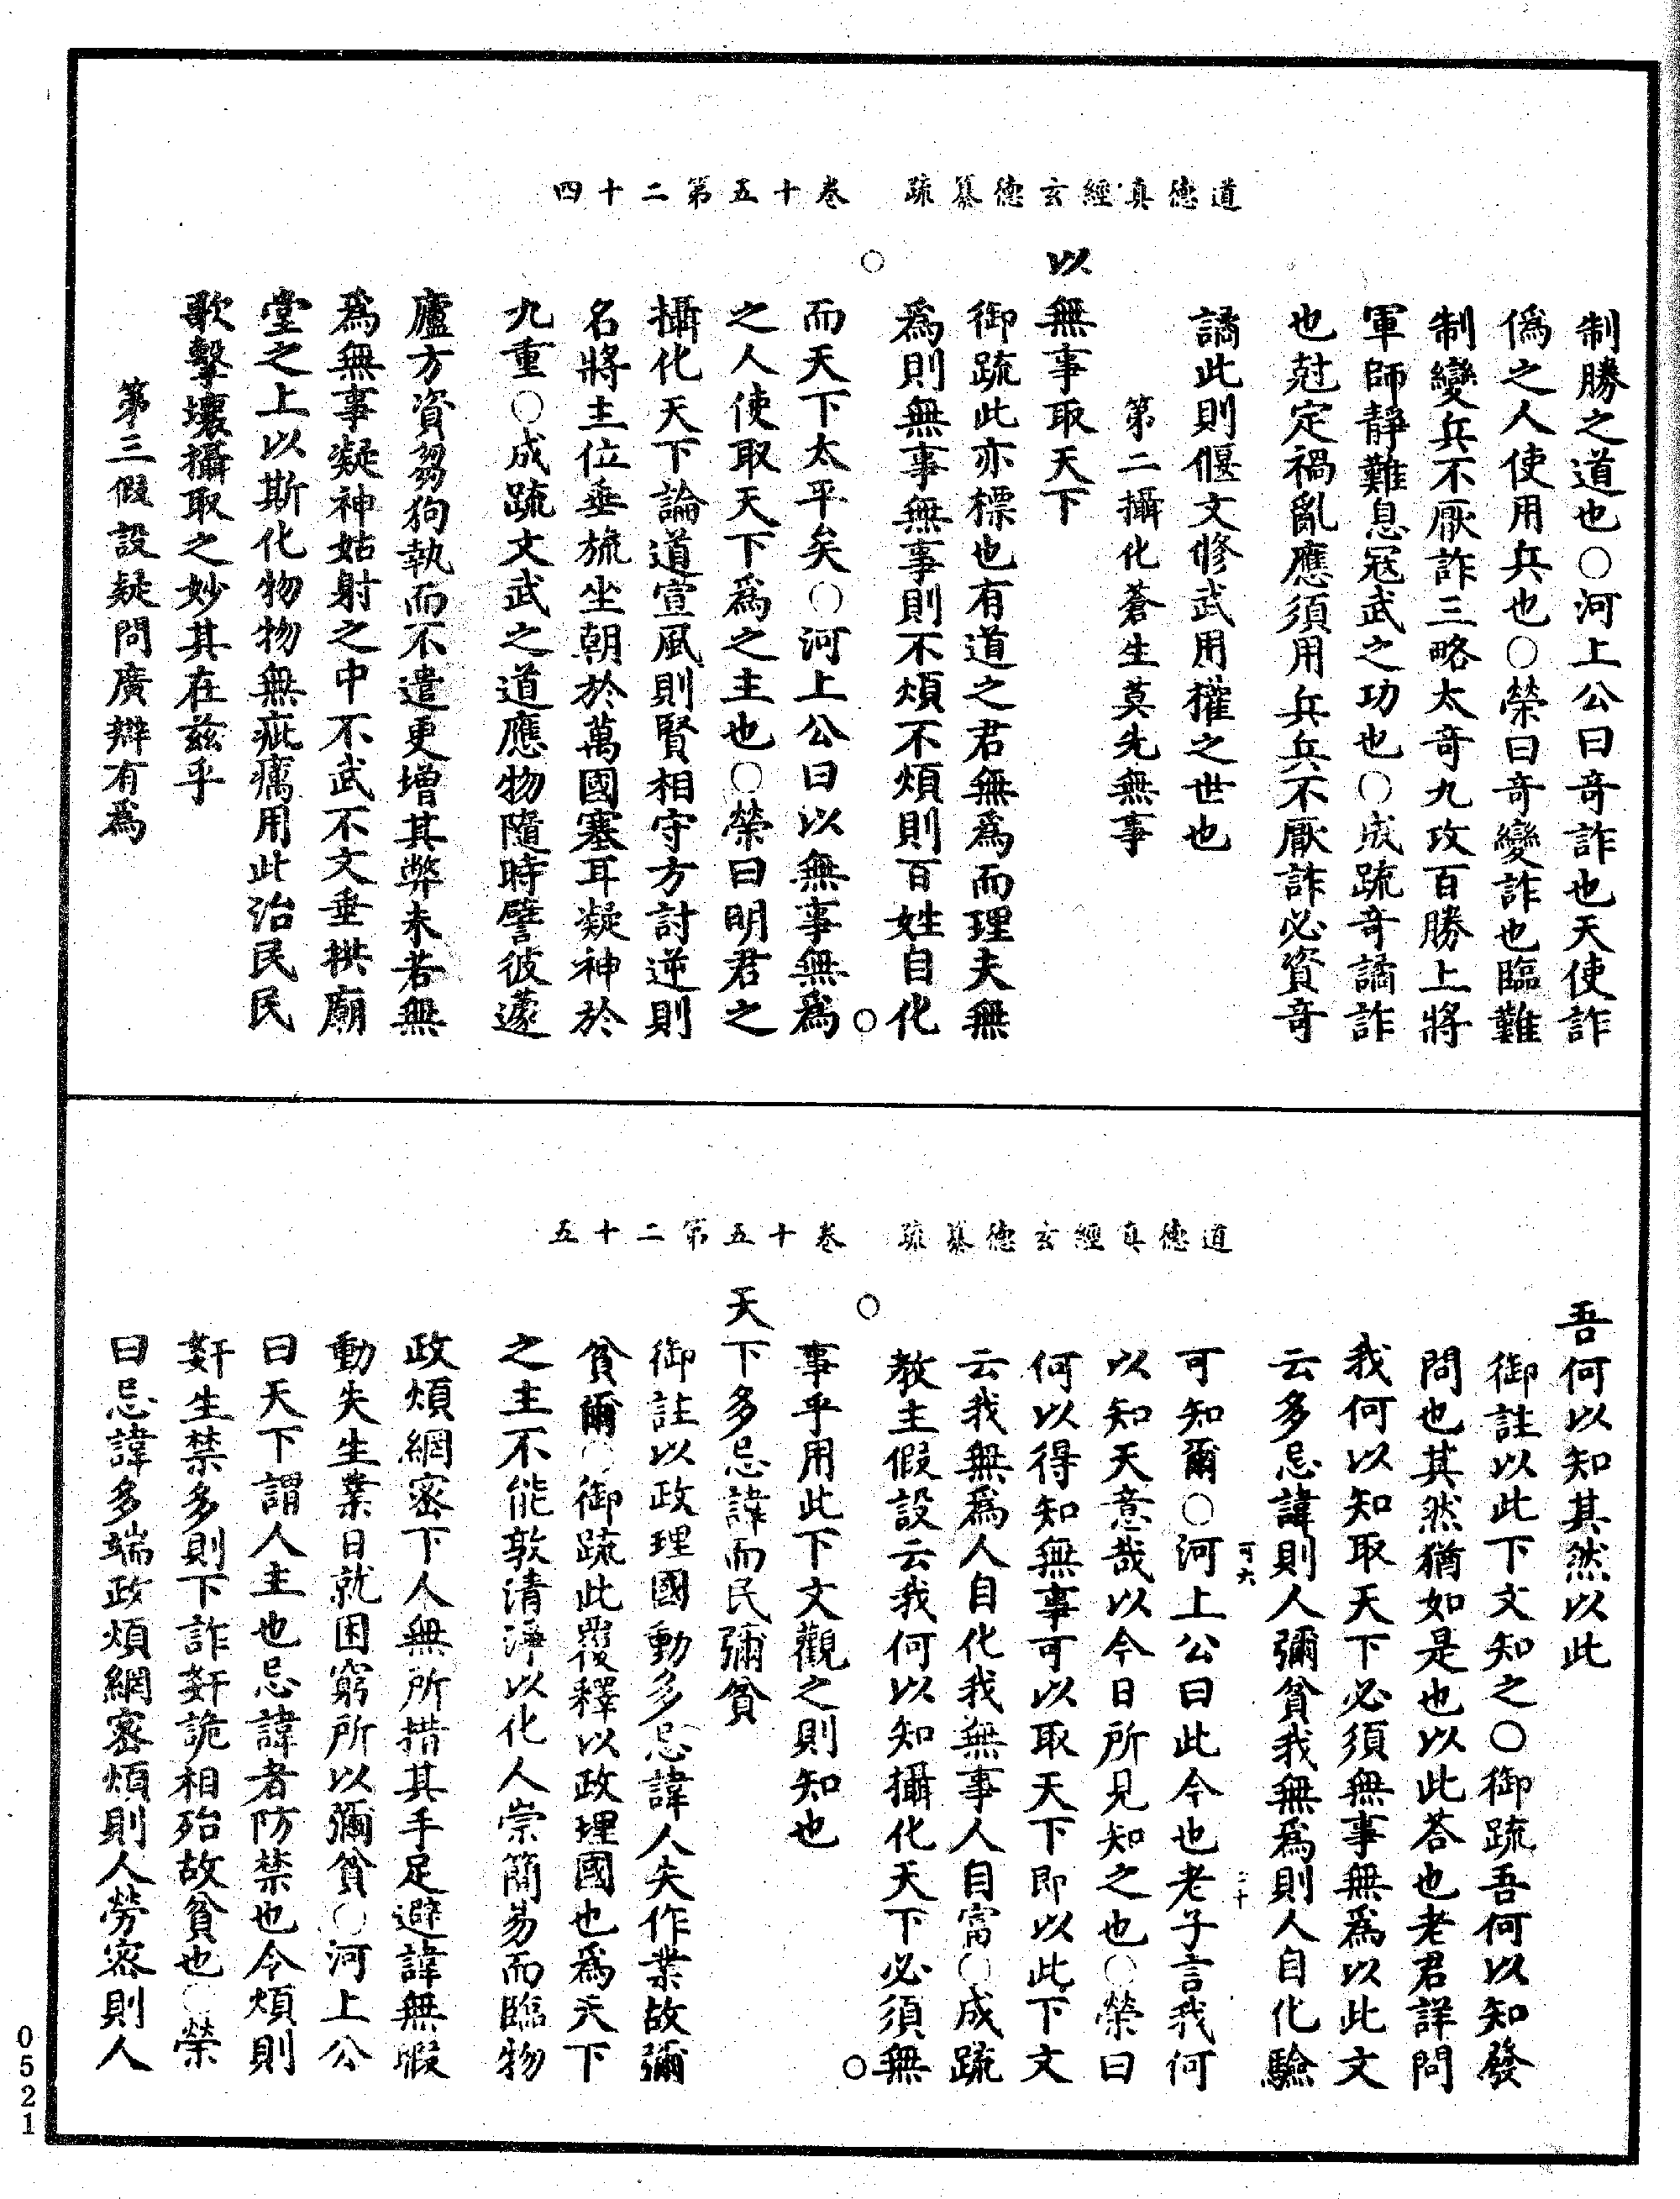 道德真經玄德纂疏　卷十五第二十四
制勝之道也○河上公曰奇詐也天使詐
偽之人使用兵也○榮曰奇變詐也臨難
制變兵不厭詐三略太奇九攻百勝上將
軍師靜難息冦武之功也○成疏奇譎詐
也尅定禍亂應須用兵兵不厭詐必資奇
譎此則偃文修武用權之世也
第二攝化蒼生莫先無事
以無事取天下
御疏此亦標也有道之君無為而理夫無
為則無事無事則不煩不煩則百姓自化
而天下太平矣○河上公曰以無事無為
之人使取天下為之主也○榮曰明君之
攝化天下論道宣風則賢相守方討逆則
名將主位垂旒坐朝於萬國塞耳凝神於
九重○成疏文武之道應物隨時譬彼蘧
廬方資芻狗執而不遣更增其弊未若無
為無事凝神姑射之中不武不文垂拱廟
堂之上以斯化物物無疵癘用此治民民
歌擊壤攝取之妙其在茲乎
第三假設疑問廣辯有為
道德真經玄德纂疏　卷十五第二十五
吾何以知其然以此
御註以此下文知之○御疏吾何以知發
問也其然猶如是也以此答也老君詳問
我何以知取天下必須無事無為以此文
云多忌諱則人彌貧我無為則人自化驗
可六　二十
可知爾○河上公曰此今也老子言我何
以知天意哉以今日所見知之也○榮曰
何以得知無事可以取天下即以此下文
云我無為人自化我無事人自富○成疏
教主假設云我何以知攝化天下必須無
事乎用此下文觀之則知也
天下多忌諱而民彌貧
御註以政理國動多忌諱人失作業故彌
貧爾○御疏此覆釋以政理國也為天下
之主不能敦清淨以化人崇簡易而臨物
政煩網密下人無所措其手足避諱無暇
動失生業日就困窮所以彌貧○河上公
曰天下謂人主也忌諱者防禁也令煩則
姧生禁多則下詐姧詭相殆故貧也○榮
曰忌諱多端政煩網密煩則人勞密則人
0521